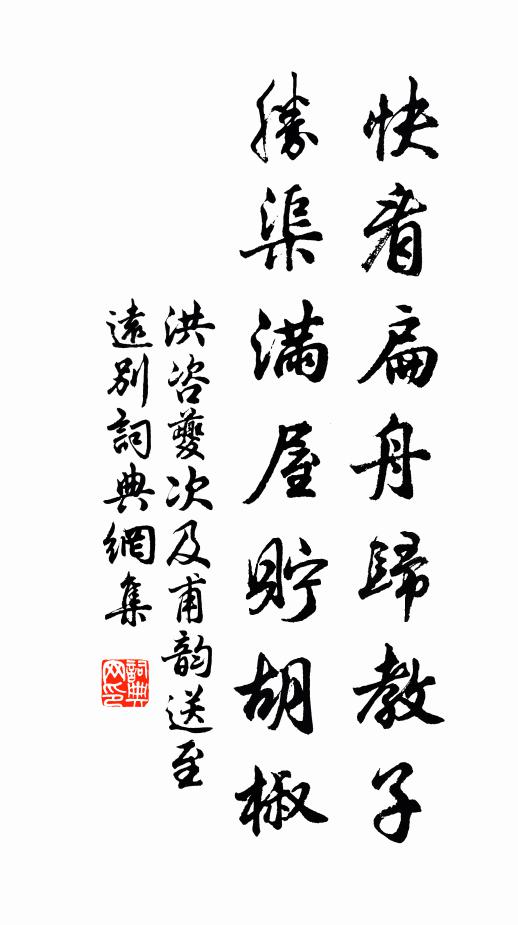 快看扁舟歸教子
勝渠滿屋貯胡椒
洪咨夔次及甫韵送至
遠別詞典網集
詞典网印